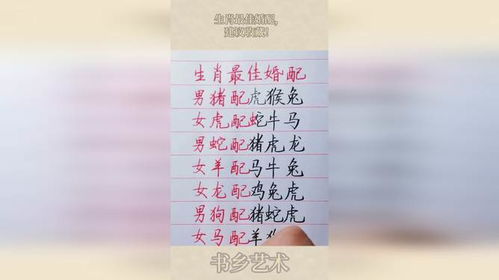 生肖最佳婚配,
建议收藏!
生肖最佳婚配
男猪配虎猴兔
女虎配蛇牛马
男蛇配猪虎龙
女羊配马牛兔
女龙配鸡兔虎
男狗配猪蛇虎
女马配羊
书乡艺术